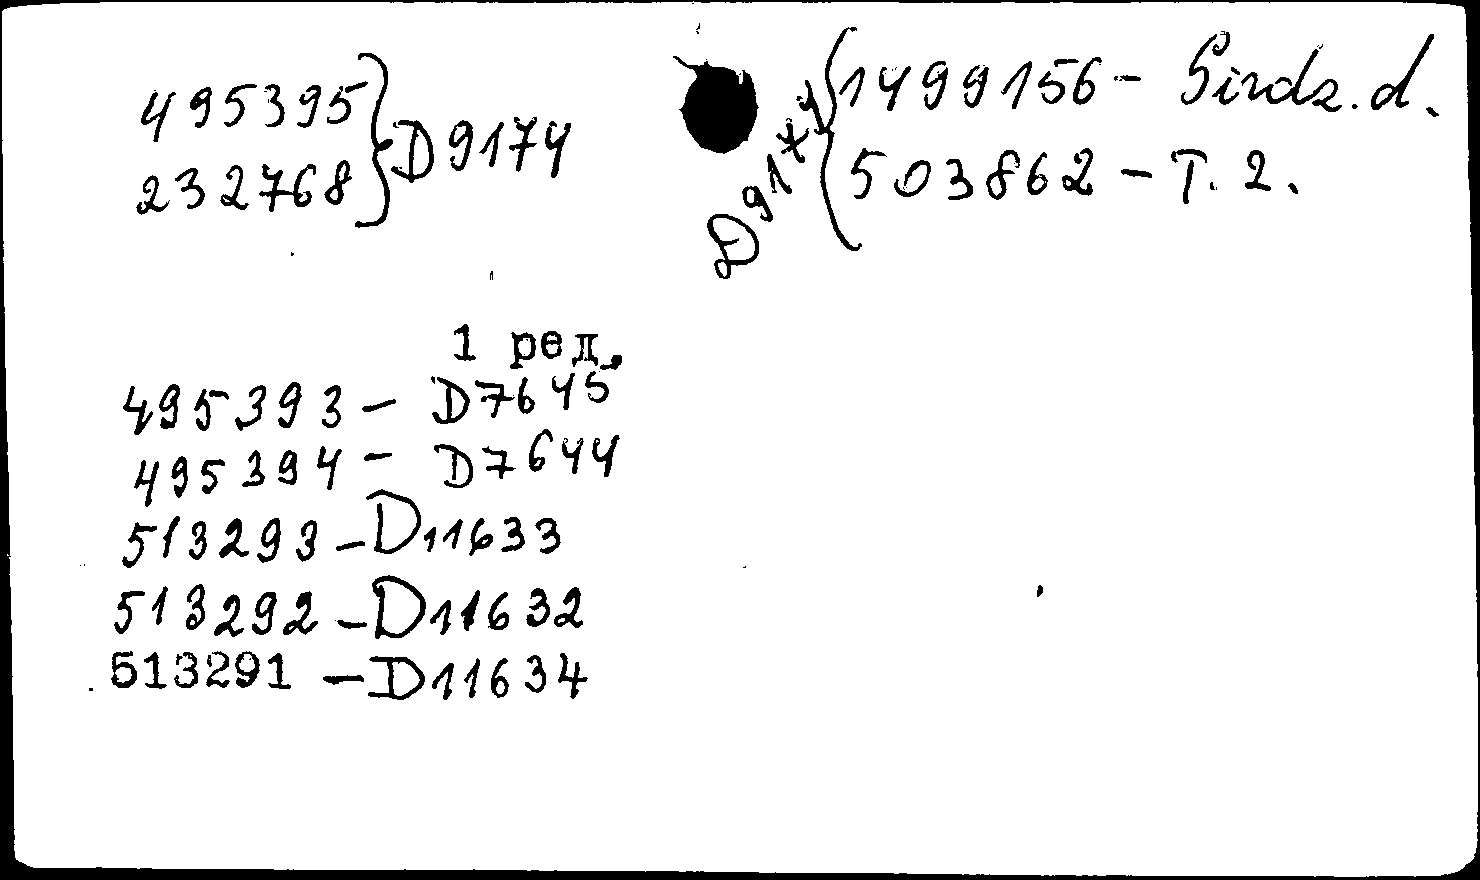 495395 } D9174
232768
D9174 { 1499156 - Sirdz. d.
503862 - T. 2.
1 ред.
495393 - D7645
495394 - D7644
513293 - D11633
513292 - D11632
513291 - D11634